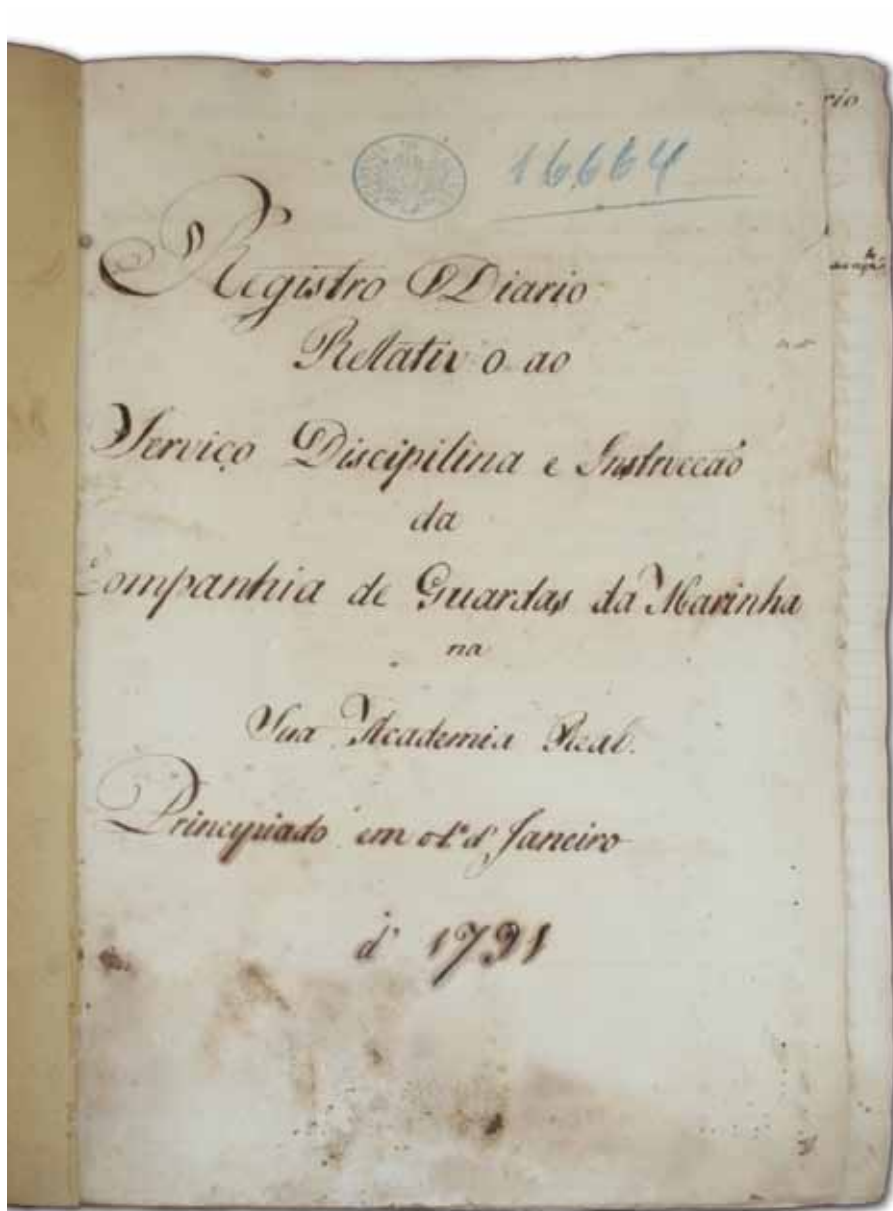 rio
16664
Registro Diario
Relativo ao
Serviço Discipilina e Instrucção
da
Companhia de Guardas da Marinha
na
Sua Academia Real.
Principiado em o 1º d' Janeiro
d' 1791